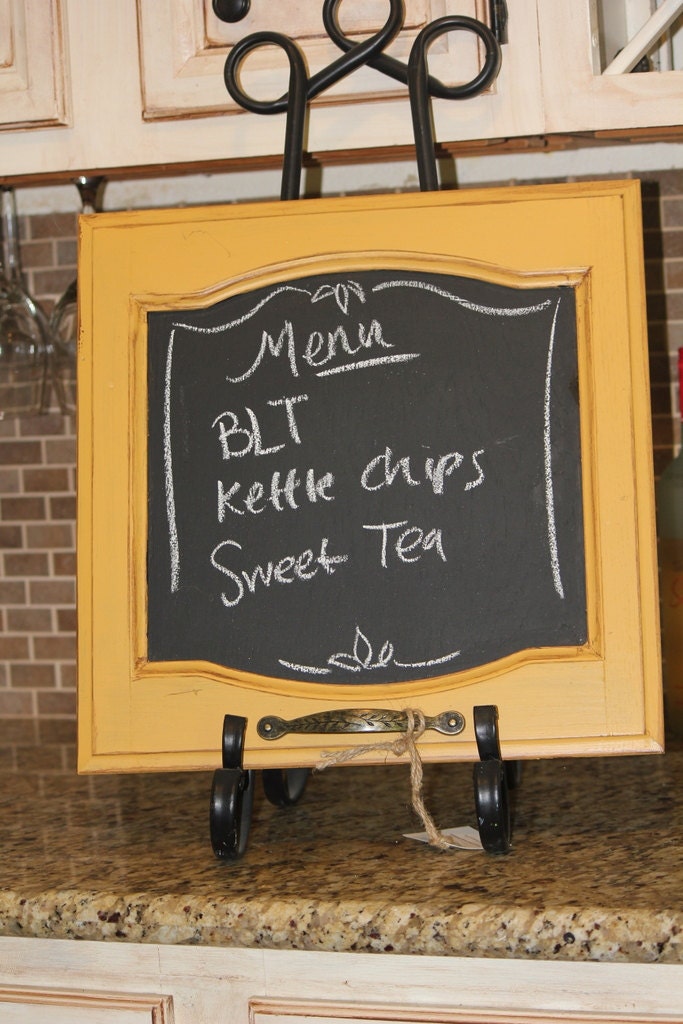 Menu
BLT
Kettle chips
Sweet Tea